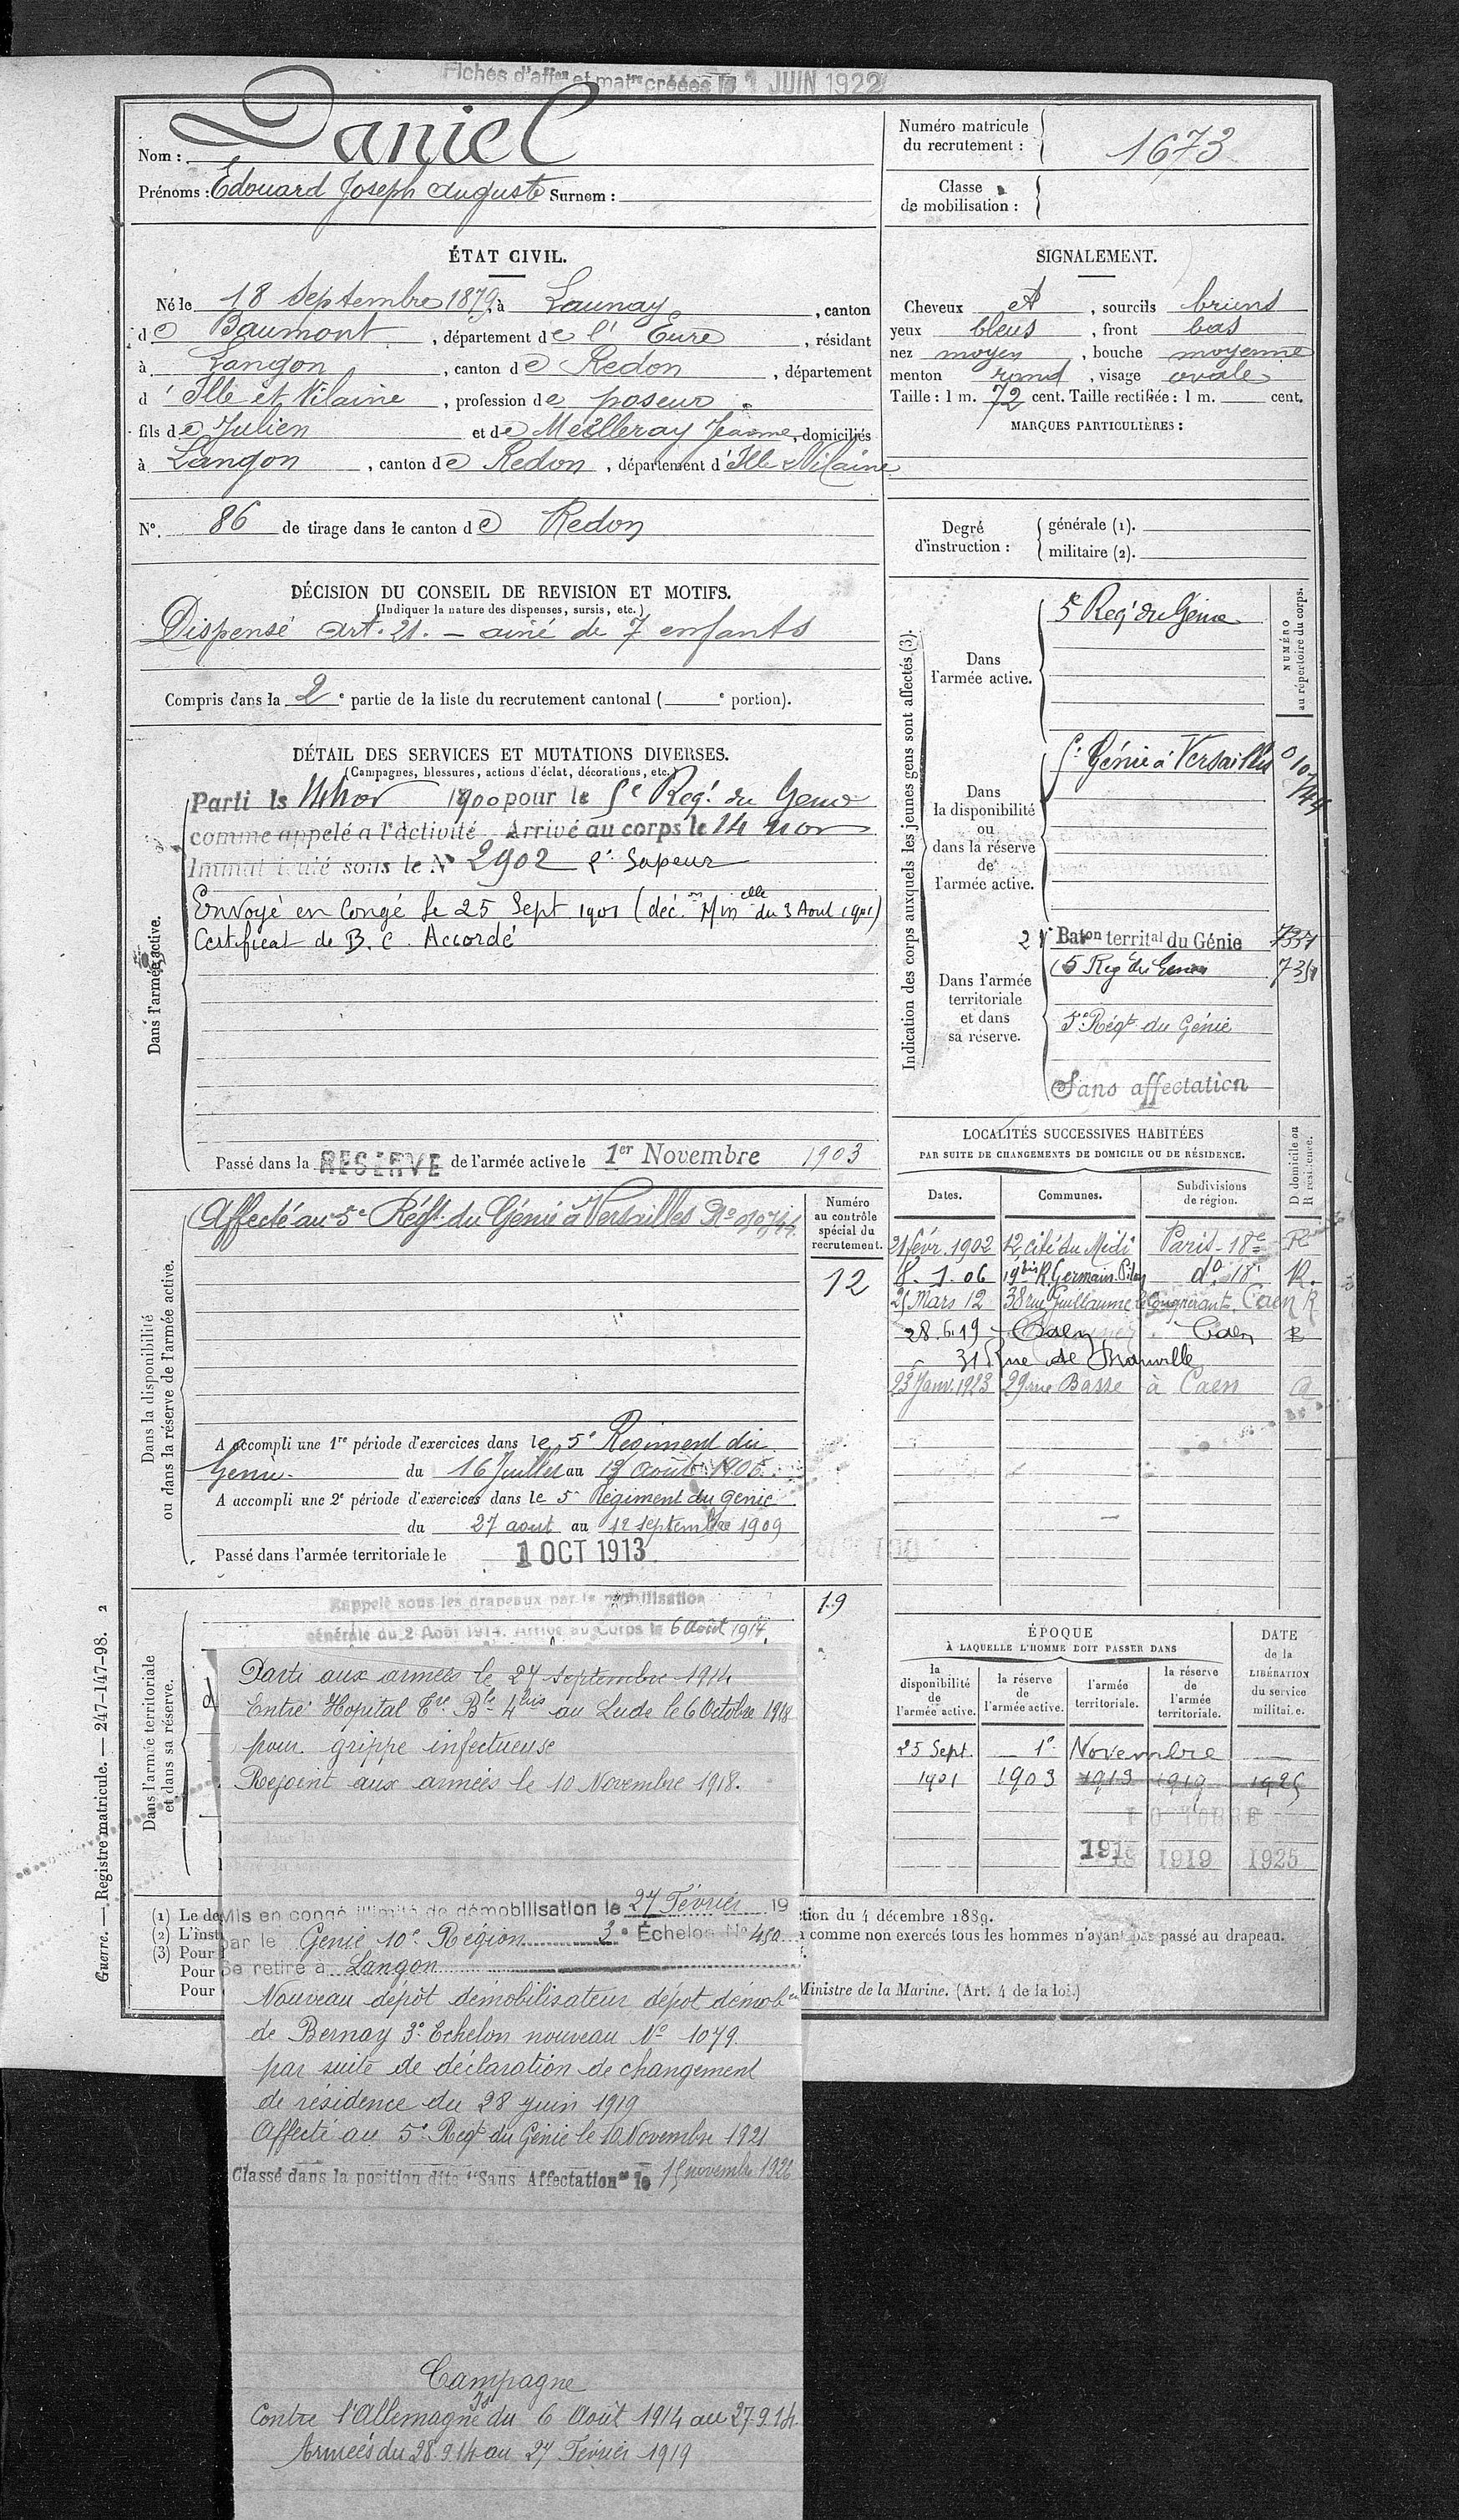 Fiches d'affon et matre créées le 1 JUIN 1922
Nom : Daniel
Prénoms : Edouard Joseph Auguste Surnom :
Numéro matricule du recrutement : 1673
Classe de mobilisation :
ÉTAT CIVIL.
Né le 18 Septembre 1879, à Launay, canton
de Baumont, département de l'Eure, résidant
à Langon, canton de Redon, département
d'Ille et Vilaine, profession de poseur
fils de Julien et de Meilleray Jeanne, domiciliés
à Langon, canton de Redon, département d'Ille & Vilaine
N°. 86 de tirage dans le canton de Redon
SIGNALEMENT.
Cheveux et, sourcils bruns
yeux bleus, front bas
nez moyen, bouche moyenne
menton rond, visage ovale
Taille : 1 m. 72 cent. Taille rectifiée : 1 m. cent.
MARQUES PARTICULIÈRES :
Degré d'instruction : générale (1).
militaire (2).
DÉCISION DU CONSEIL DE REVISION ET MOTIFS.
(Indiquer la nature des dispenses, sursis, etc.)
Dispensé art. 21. – ainé de 7 enfants
Compris dans la 2e partie de la liste du recrutement cantonal ( e portion).
DÉTAIL DES SERVICES ET MUTATIONS DIVERSES.
(Campagnes, blessures, actions d'éclat, décorations, etc.)
Dans l'armée active.
Parti le 14 Nov 1900 pour le 5e Rég.t du Génie
comme appelé à l'activité. Arrivé au corps le 14 nov
Immatriculé sous le N° 2902 2e Sapeur
Envoyé en Congé le 25 Sept 1901 (déc.on Minelle du 3 Aout 1901)
Certificat de B. C. Accordé
Passé dans la RESERVE de l'armée active le 1er Novembre 1903
Indication des corps auxquels les jeunes gens sont affectés (3).
NUMÉRO au répertoire du corps.
Dans l'armée active.
5e Rég.t du Génie
Dans la disponibilité ou dans la réserve de l'armée active.
5e Génie à Versailles
Dans l'armée territoriale et dans sa réserve.
Baton territal du Génie
5 Reg du Genie
5e Régt du Génie
Sans affectation
Dans la disponibilité ou dans la réserve de l'armée active.
Affecté au 5e Régt. du Génie à Versailles
Numéro au contrôle spécial du recrutement.
12
A accompli une 1re période d'exercices dans le 5e Regiment du
Génie du 16 Juillet au août
A accompli une 2e période d'exercices dans le 5e Régiment du Génie
du 27 aout au 12 septembre 1909
Passé dans l'armée territoriale le 1 OCT 1913
LOCALITÉS SUCCESSIVES HABITÉES
PAR SUITE DE CHANGEMENTS DE DOMICILE OU DE RÉSIDENCE.
Dates. Communes. Subdivisions de région. D domicile ou R résidence.
21 févr. 1902 12 cité du Midi Paris - 18e R
8. 1. 06 19 bis R. Germain Pilon do. 18e R.
25 Mars 12 38 rue Guillaume le Conquérant Caen R
28.6.19 Caen Caen R
31 Rue de Branville
23 Janv. 1923 29 rue Basse à Caen
Dans l'armée territoriale et dans sa réserve.
19
Rappelé sous les drapeaux par la mobilisation
générale du 2 Août 1914. Arrivé au Corps le 6 Août 1914.
Parti aux armées le 27 septembre 1914
Entré Hopital Cre Ble 4 bis au Lude le 6 Octobre 1918
pour grippe infectueuse
Rejoint aux armées le 10 Novembre 1918.
Mis en congé illimité de démobilisation le 27 Février 19
par le Génie 10e Région 3e Échelon N° 450
Se retire à Langon
Nouveau dépôt démobilisateur dépot démobon
de Bernay 3e Echelon nouveau N° 1079
par suite de déclaration de changement
de résidence du 28 juin 1919
Affecté au 5e Regt du Génie le 10 Novembre 1921
Classé dans la position dite "Sans Affectation" le 15 novembre 1926
Campagne
Contre l'Allemagne du 6 Août 1914 au 27.9.14
Armées du 28.9.14 au 27 Février 1919
ÉPOQUE
À LAQUELLE L'HOMME DOIT PASSER DANS
la disponibilité de l'armée active. la réserve de l'armée active. l'armée territoriale. la réserve de l'armée territoriale.
DATE de la LIBÉRATION du service militaire.
25 Sept. 1er Novembre
1901 1903 1913 1919 1925
1919 1925
(1) Le de
(2) L'inst
(3) Pour
Pour
Pour
tion du 4 décembre 1889.
comme non exercés tous les hommes n'ayant pas passé au drapeau.
Ministre de la Marine. (Art. 4 de la loi.)
Guerre. — Registre matricule. — 247-147-98. 2